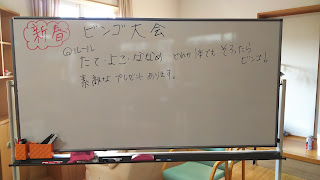 新春 ビンゴ大会
◎ルール
たて・よこ・ななめ どれか1本でも そろったら
ビンゴ!
素敵な プレゼント あります。